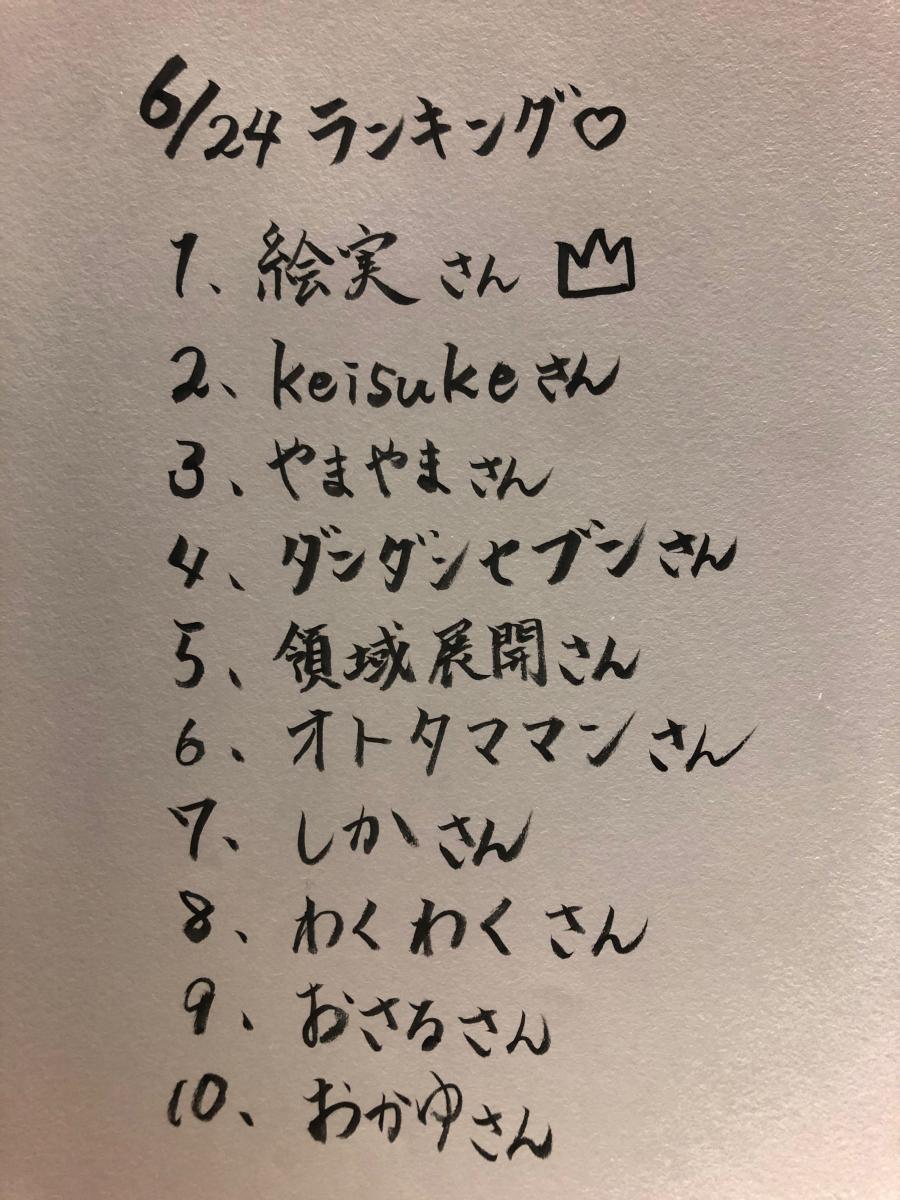 6/24 ランキング♡
1、絵実さん
2、keisukeさん
3、やまやまさん
4、ダンダンセブンさん
5、領域展開さん
6、オトタママンさん
7、しかさん
8、わくわくさん
9、おさるさん
10、おかゆさん